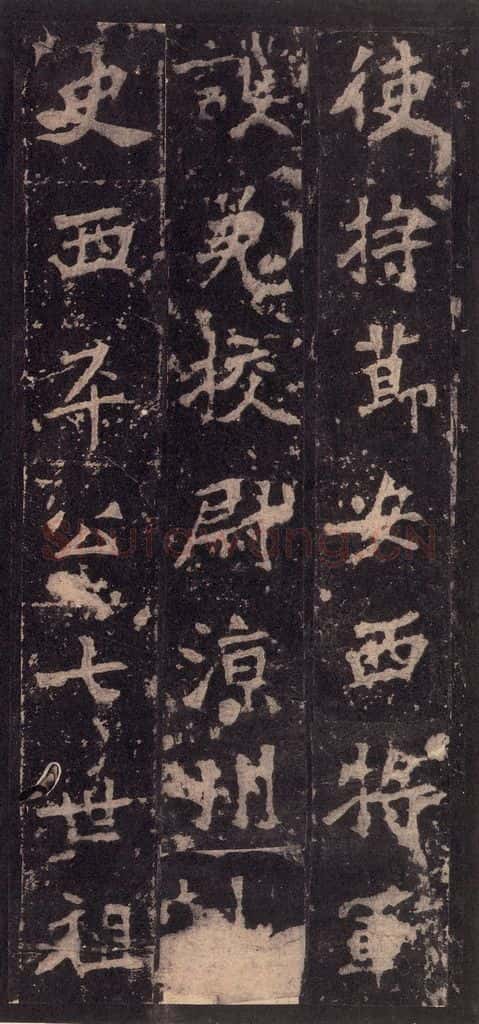 使持節安西將軍
護羌校尉涼州
史西平公七世祖
Shufawang.CN